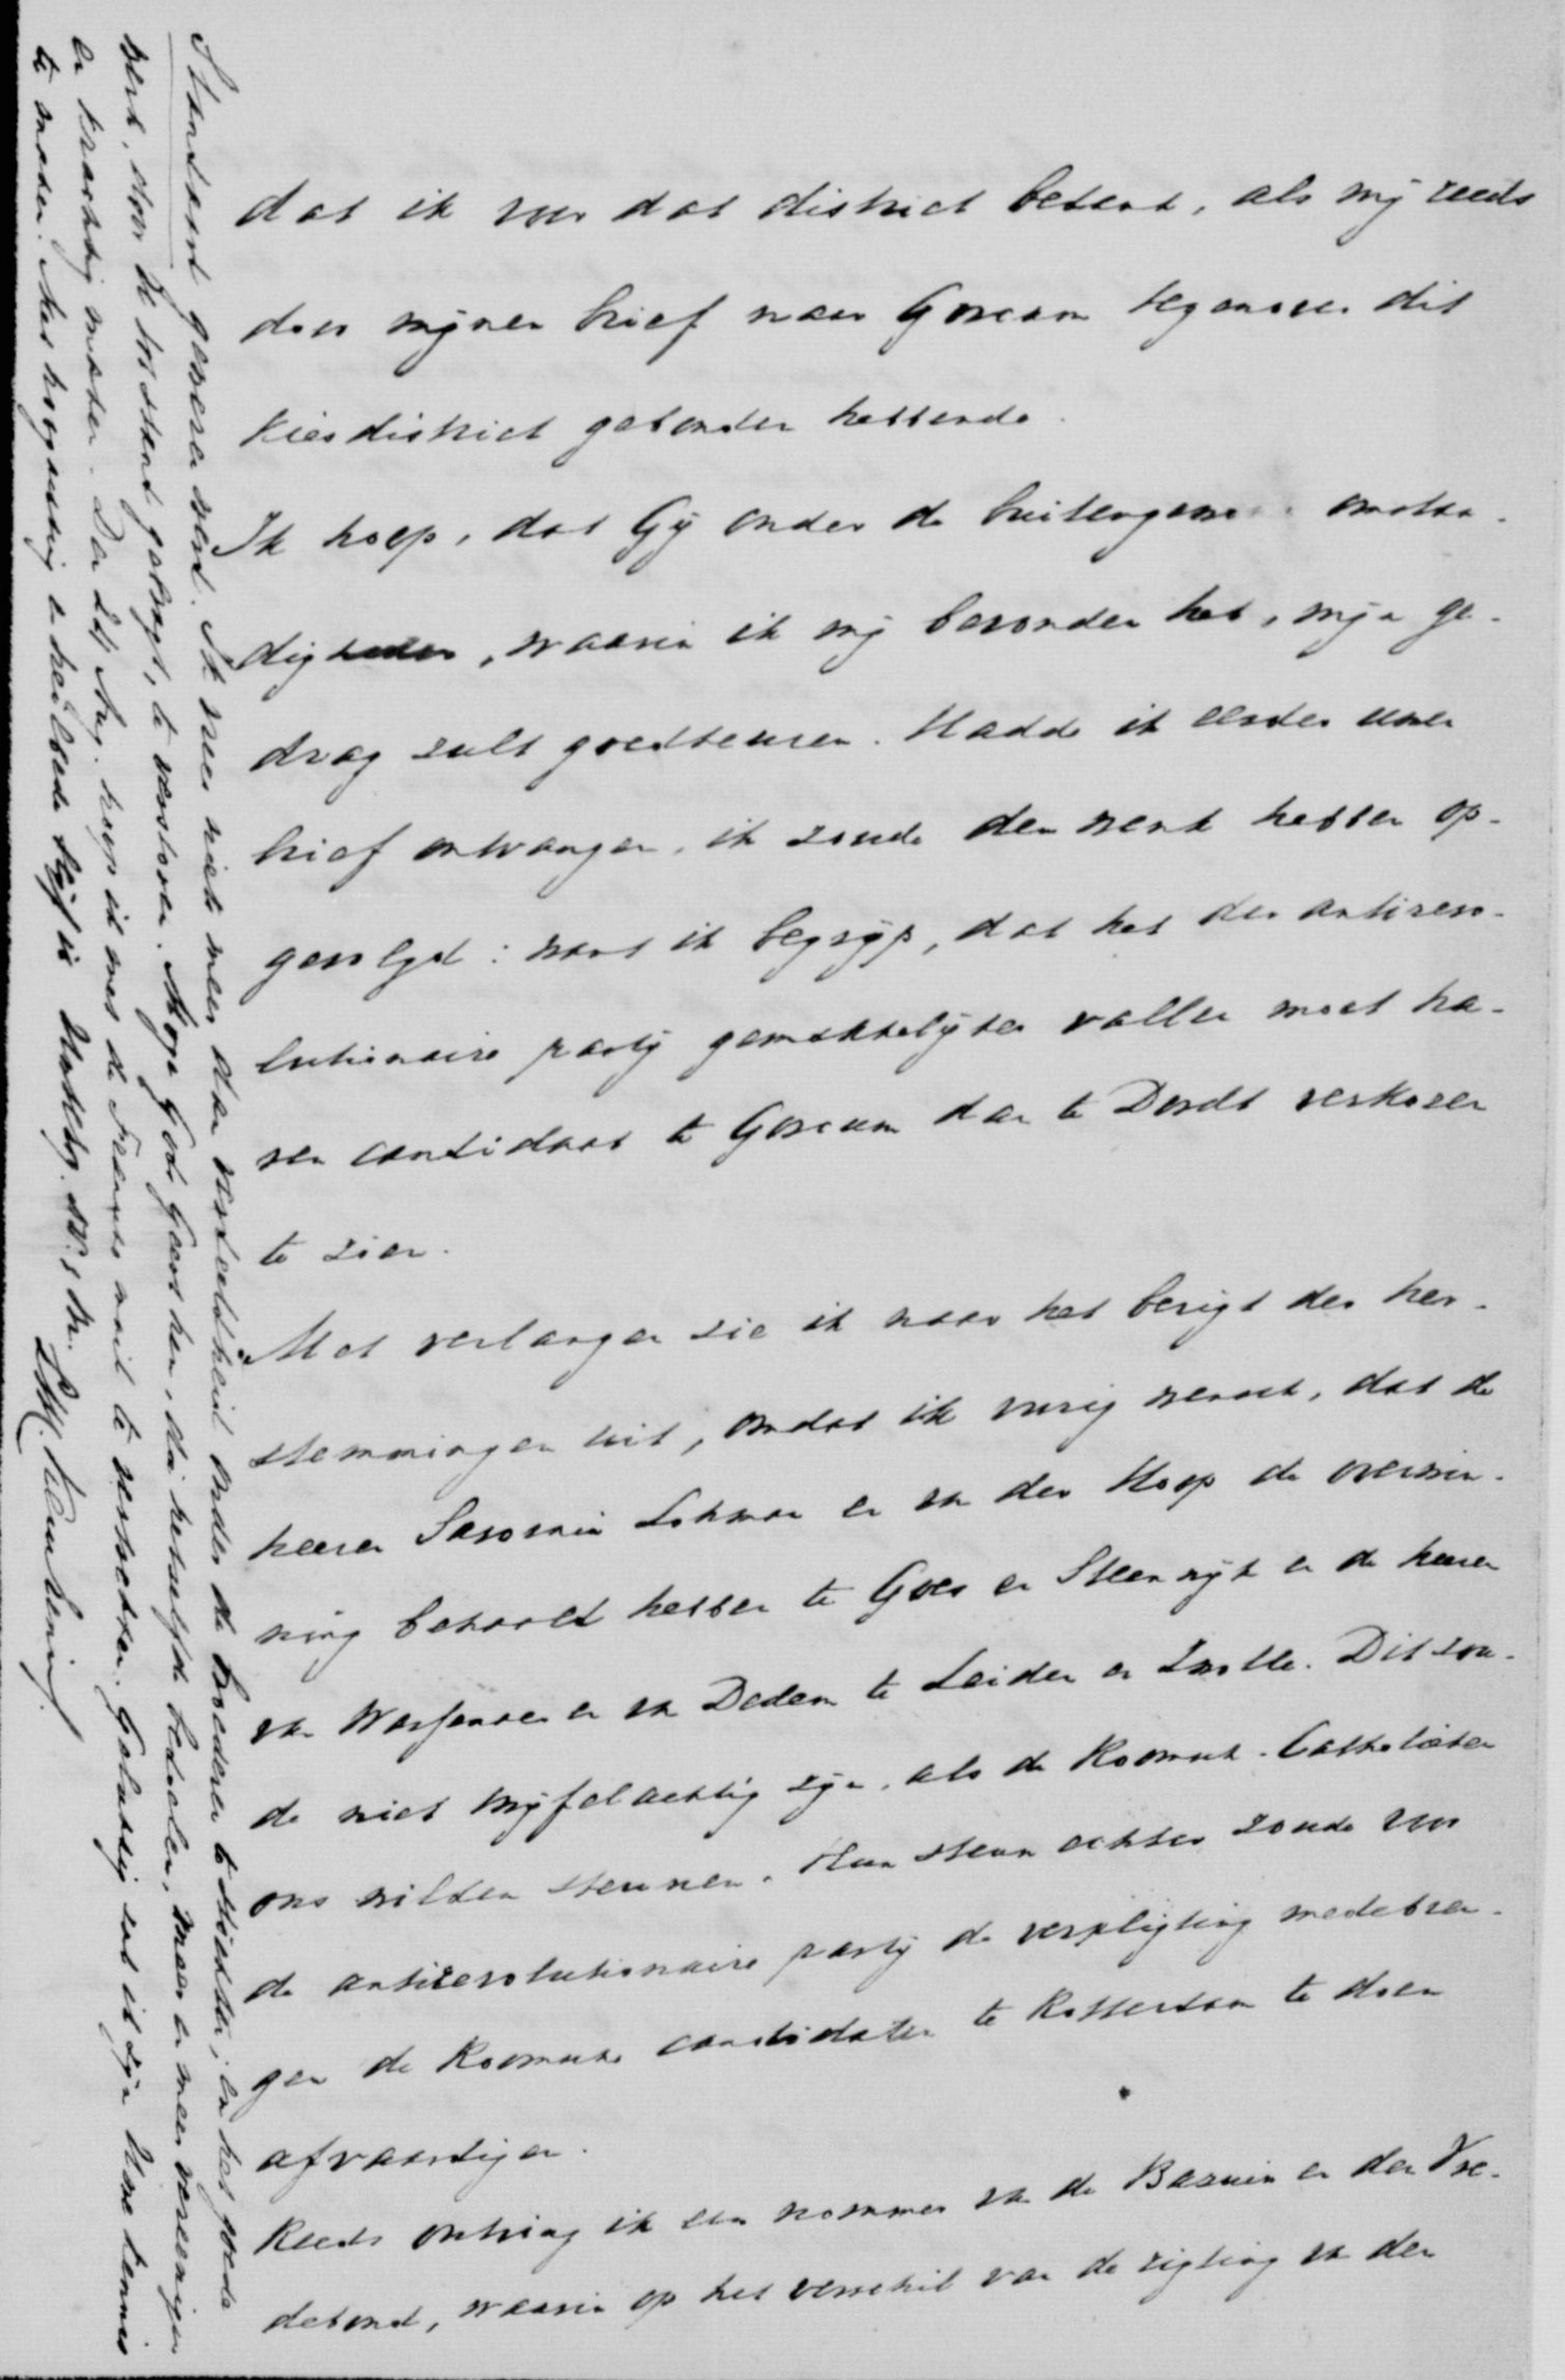 dat ik voor dat district bedank, als mij reeds
door mijnen brief naar Gorcum tegenover dit
kiesdistrict gebonden hebbende.
Ik hoop, dat Gij onder de buitengewone omstan-
digheden, waarin ik mij bevonden heb, mijn ge-
drag zult goedkeuren. Hadde ik eerder uwen
brief ontvangen, ik zoude den wenk hebben op-
gevolgd: want ik begrijp, dat het der antirevo-
lutionaire partij gemakkelijker vallen moet ha-
ren candidaat te Gorcum dan te Dordt verkozen
te zien.
Met verlangen zie ik naar het berigt der her-
stemmingen uit, omdat ik vurig wensch, dat de
heeren Savornin Lohman en van der Hoop de overwin-
ning behaald hebben te Goes en Steenwijk en de heeren
van Wassenaer en van Dedem te Leiden en Zwolle. Dit zou-
de niet twijfelachtig zijn, als de Roomsch-Catholieken
ons wilden steunen. Hun steun echter zoude voor
de antirevolutionaire partij de verpligting medebren-
gen de Roomsche candidaten te Rotterdam te doen
afvaardigen.
Reeds ontving ik een nommer van de Bazuin en den Vre-
debond, waarin op het verschil van de rigting van den
Standaard gewezen werd. Ik vrees niets meer dan verdeeldheid onder de broederen te stichten; en het goede
werk, door De Standaard gepleegd, te verstoren. Moge God Geest hen, die hetzelfde bedoelen, meer en meer vereenigen
en krachtig maken. Den 24 Aug. hoop ik met de Fransche mail te vertrekken. Gelukkig zal ik zijn Uwe kennis
te maken. Met hoogachting en heilbede blijf ik UwHEdG. dw. dr. L.W.C. Keuchenius